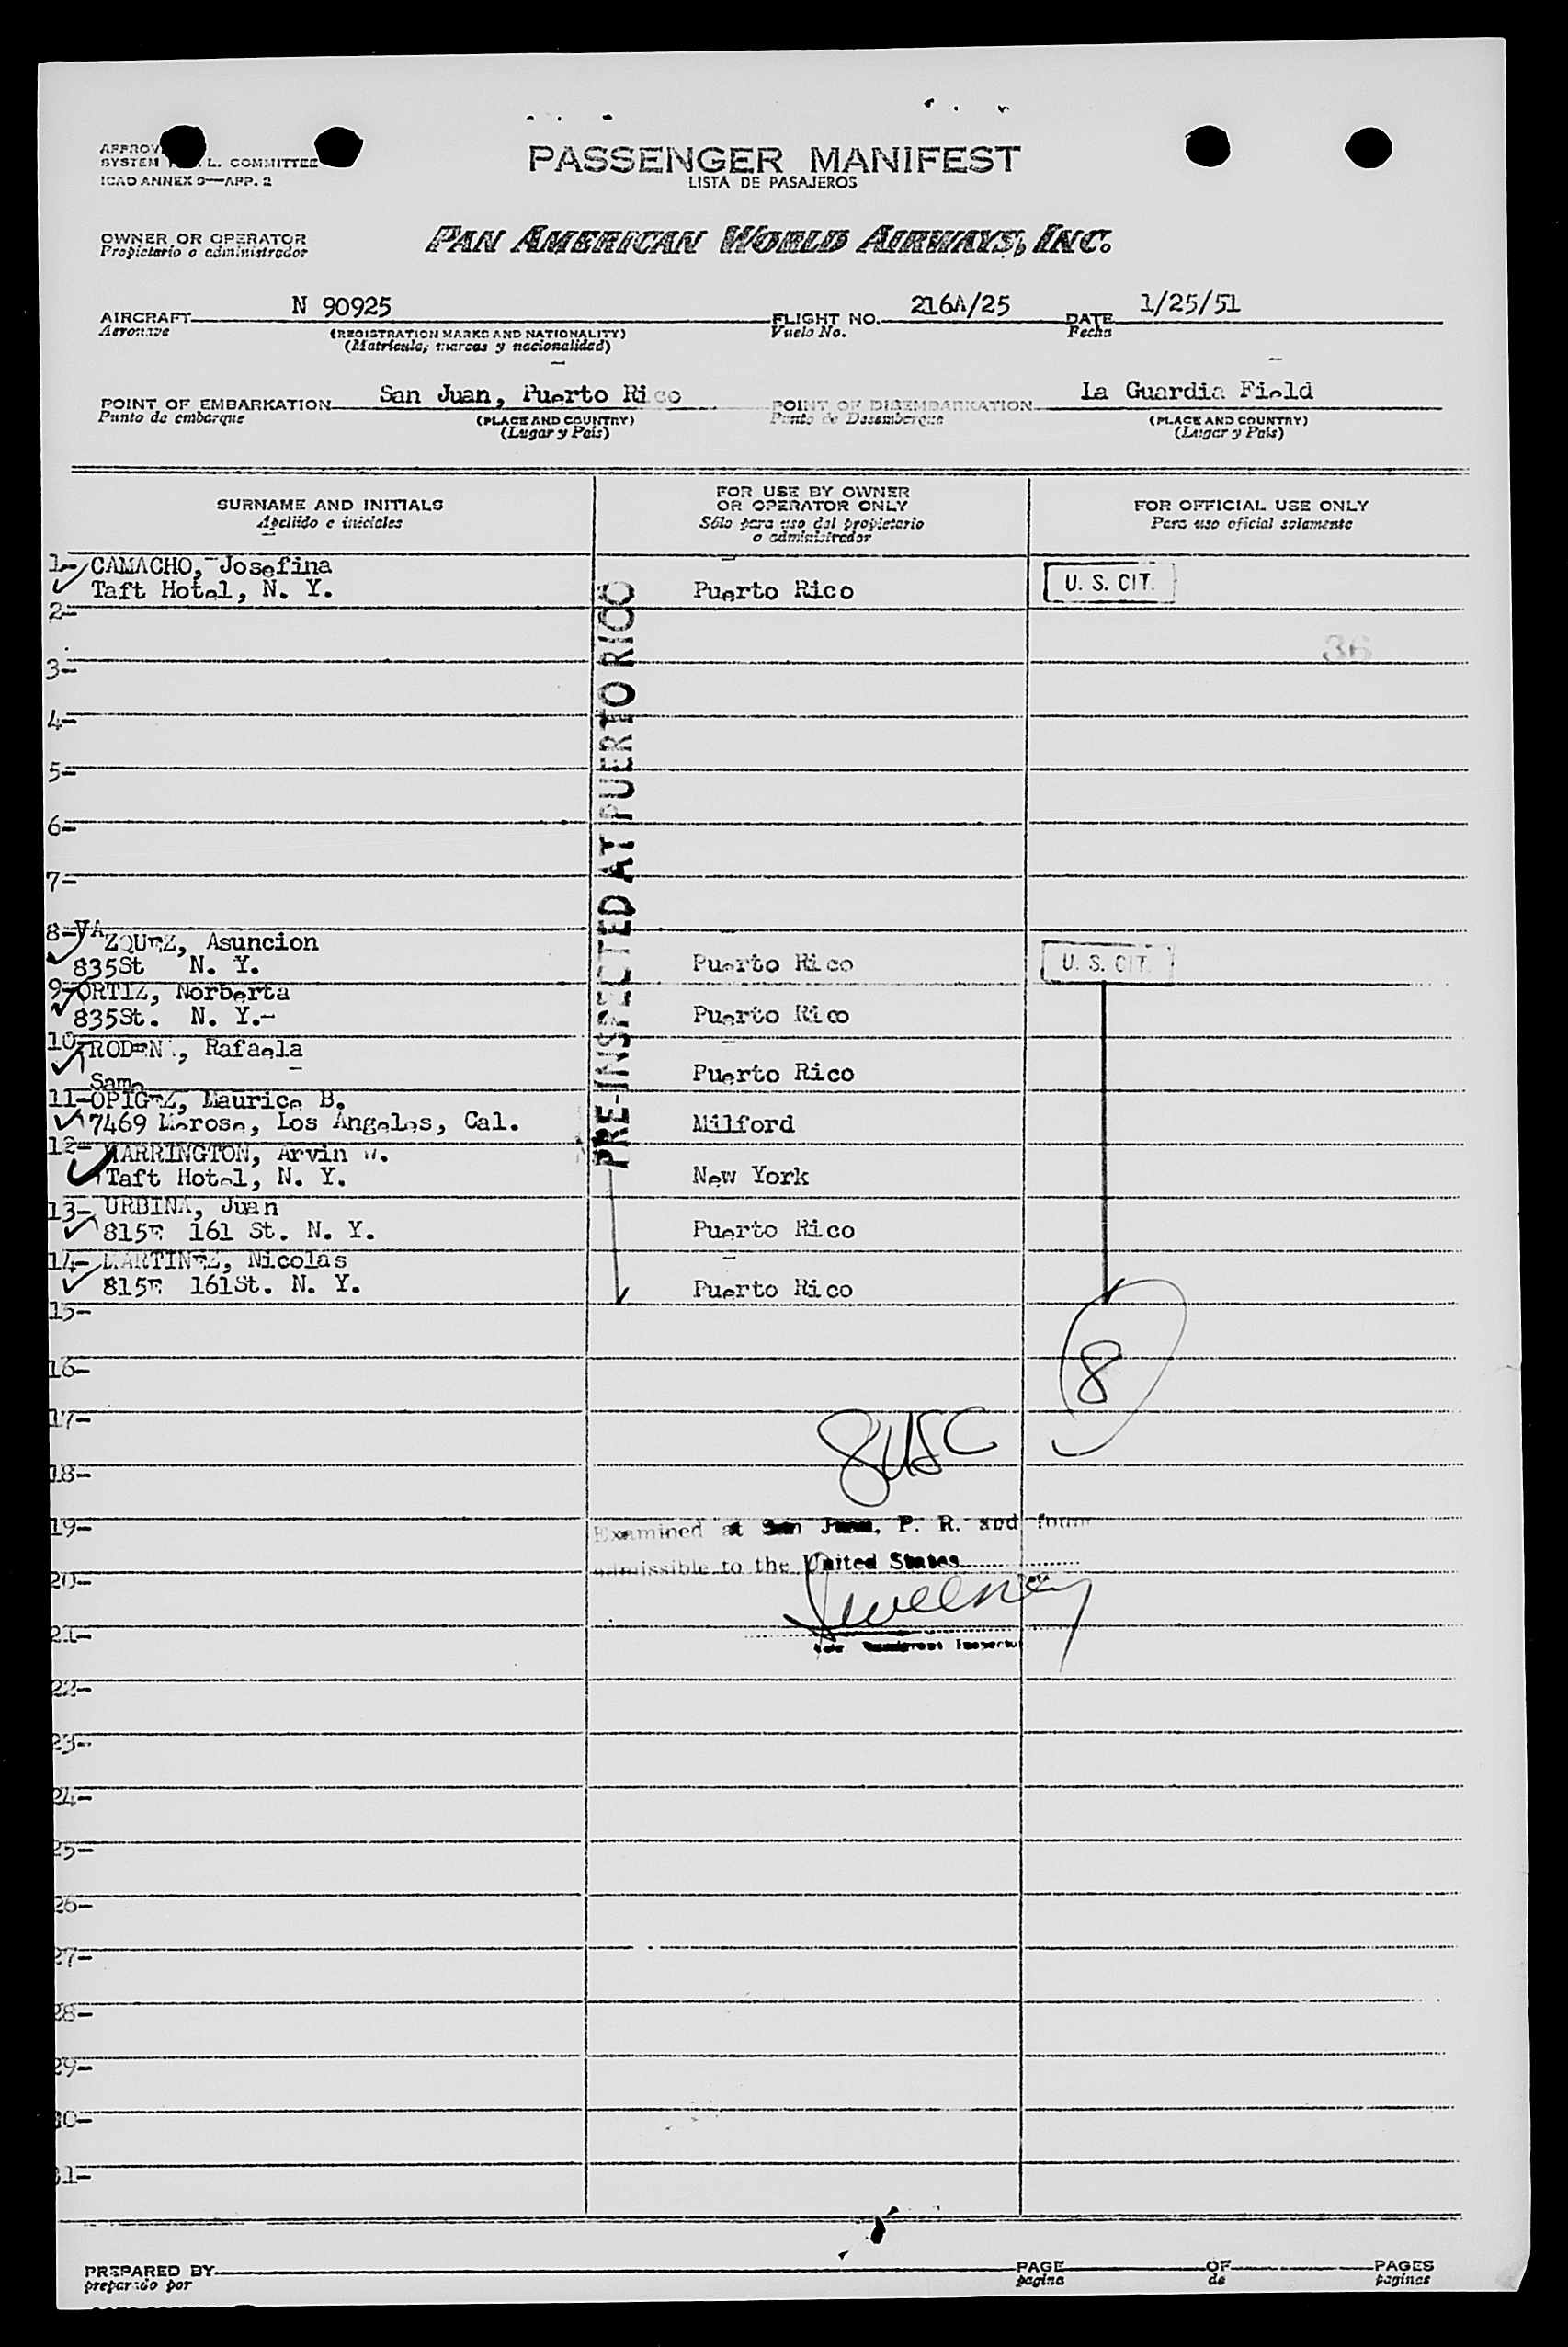 PASSENGER MANIFEST
LISTA DE PASAJEROS
SYSTEM L. COMMITTEE
ICAO ANNEX 9—APP. 2
OWNER OR OPERATOR
Propietario o administrador
PAN AMERICAN WORLD AIRWAYS, INC.
AIRCRAFT N 90925 FLIGHT NO. 216A/25 DATE 1/25/51
Aeronave (REGISTRATION MARKS AND NATIONALITY) Vuelo No. Fecha
(Matrícula, marcas y nacionalidad)
POINT OF EMBARKATION San Juan, Puerto Rico POINT OF DISEMBARKATION La Guardia Field
Punto de embarque (PLACE AND COUNTRY) Punto de Desembarque (PLACE AND COUNTRY)
(Lugar y País) (Lugar y País)
SURNAME AND INITIALS
Apellido e iniciales
FOR USE BY OWNER
OR OPERATOR ONLY
Sólo para uso del propietario
o administrador
FOR OFFICIAL USE ONLY
Para uso oficial solamente
PRE-INSPECTED AT PUERTO RICO
1- CAMACHO, Josefina
Taft Hotel, N. Y. Puerto Rico U. S. CIT.
2-
36
3-
4-
5-
6-
7-
8- VAZQUEZ, Asuncion
835St N. Y. Puerto Rico U. S. CIT.
9- ORTIZ, Norberta
835St. N. Y.- Puerto Rico
10- Rafaela
Same Puerto Rico
11- Maurice B.
7469 Los Angeles, Cal. Milford
12- Arvin W.
Taft Hotel, N. Y. New York
13- URBINA, Juan
815E 161 St. N. Y. Puerto Rico
14- MARTINEZ, Nicolas
815E 161St. N. Y. Puerto Rico
15-
8
16-
17-
8USC
18-
19-
Examined at San Juan, P. R. and found
admissible to the United States
20-
Sweeney
21-
Immigrant Inspector
22-
23-
24-
25-
26-
27-
28-
29-
30-
31-
PREPARED BY PAGE OF PAGES
preparado por pagina de paginas